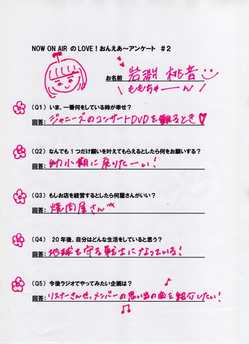 NOW ON AIR のLOVE！おんえあ〜アンケート #2
お名前 岩淵 桃音
ももちゃーん！
(Q1) いま、一番何をしている時が幸せ？
回答: ジャニーズのコンサートDVDを観るとき♥
(Q2) なんでも1つだけ願いを叶えてもらえるとしたら何をお願いする？
回答: 幼少期に戻りたーい！
(Q3) もしお店を経営するとしたら何屋さんがいい？
回答: 焼肉屋さん
(Q4) 20年後、自分はどんな生活をしていると思う？
回答: 地球を守る戦士になっている！
(Q5) 今後ラジオでやってみたい企画は？
回答: リスナーさんや、メンバーの思い出の曲を紹介したい！